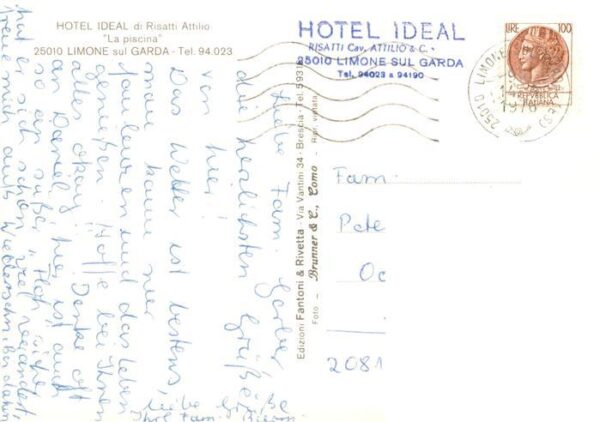 HOTEL IDEAL di Risatti Attilio
"La piscina"
25010 LIMONE sul GARDA - Tel. 94.023
HOTEL IDEAL
RISATTI Cav. ATTILIO & C.
25010 LIMONE SUL GARDA
Tel. 94023 a 94190
LIRE 100
REPUBBLICA
ITALIANA
25010 LIMONE
Edizioni Fantoni & Rivetta - Via Vantini 34 - Brescia - Tel. 5931
Foto - Brunner & C., Como - Ripr. vietata
Liebe Fam. Gerber
die herzlichsten Grüße
von hier!
Das Wetter ist bestens,
man kann nur
faulenzen und das Leben
genießen. Hoffe bei Ihnen
alles okay. Denke oft
an Daniel, hier ist auch
so ein süßer.
hat er sich schon
freue mich aufs Wiedersehen
Liebe Grüße
Ihre Fam.
Fam
Pete
Oc
2081